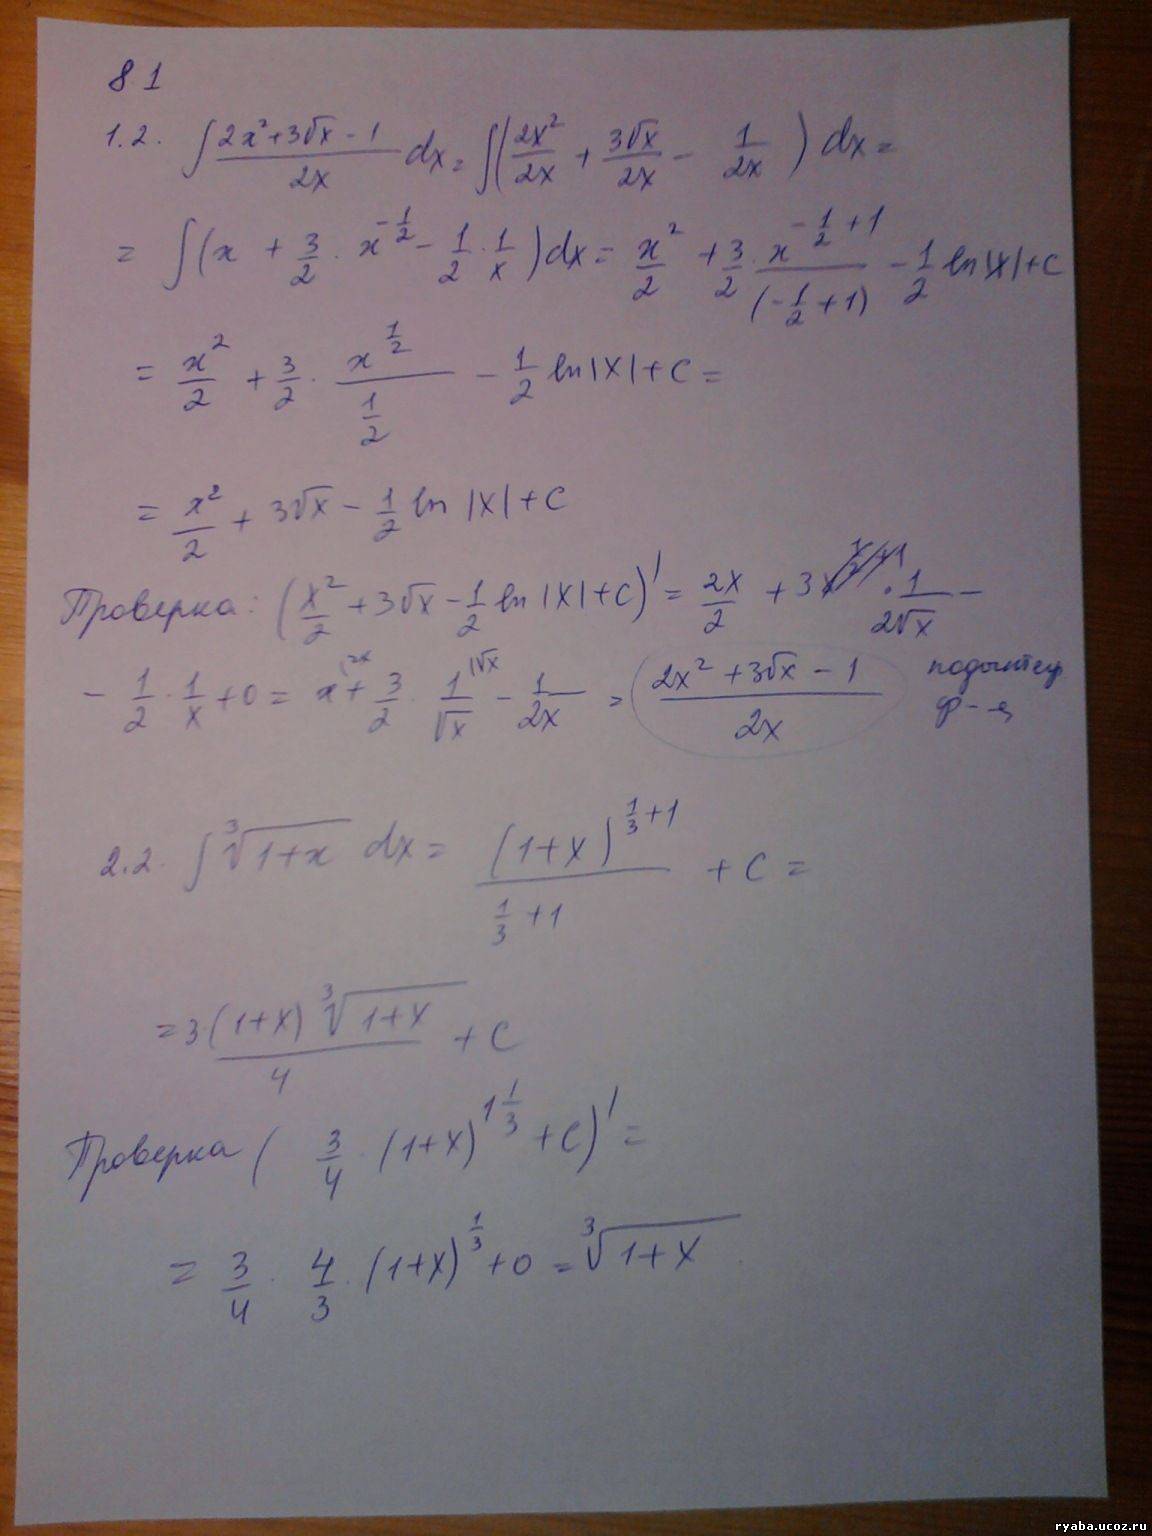 81
1.2. ∫ (2x²+3√x - 1)/(2x) dx = ∫(2x²/2x + 3√x/2x - 1/2x) dx =
= ∫(x + 3/2 · x^(-1/2) - 1/2 · 1/x) dx = x²/2 + 3/2 · x^(-1/2 + 1)/(-1/2 + 1) - 1/2 ln|x| + C
= x²/2 + 3/2 · x^(1/2)/(1/2) - 1/2 ln|x| + C =
= x²/2 + 3√x - 1/2 ln |x| + C
Проверка: (x²/2 + 3√x - 1/2 ln |x| + C)' = 2x/2 + 3 · 1/(2√x) -
- 1/2 · 1/x + 0 = x^(2x) + 3/2 · 1/√x^(√x) - 1/2x = (2x² + 3√x - 1)/(2x) подынтегр
ф-я
2.2. ∫ ³√(1+x) dx = (1+x)^(1/3 + 1)/(1/3 + 1) + C =
= 3(1+x) ³√(1+x)/4 + C
Проверка ( 3/4 · (1+x)^(1 1/3) + C)' =
= 3/4 · 4/3 · (1+x)^(1/3) + 0 = ³√(1+x)
ryaba.ucoz.ru